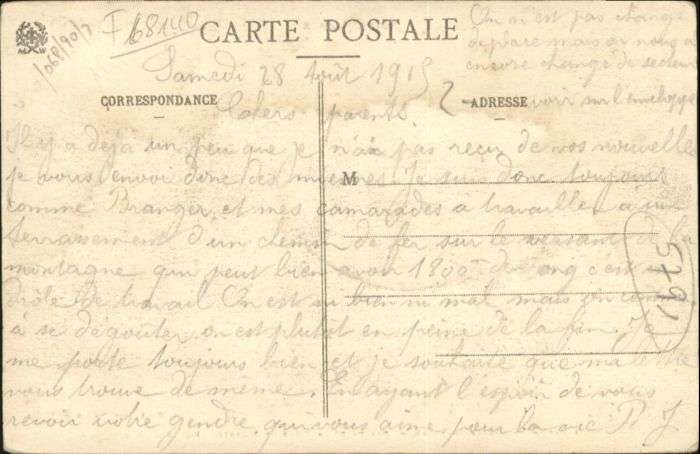 I 68140
1068/90/7
CARTE POSTALE
On n'est pas changé
de place mais on nous a
encore changé de secteur
voir sur l'enveloppe
Samedi 28 Août 1915
CORRESPONDANCE
ADRESSE
Chers parents
Il y a déjà un peu que je n'ai pas reçu de vos nouvelles
je vous envoi donc des miennes. Je suis donc toujours
M
comme Branger et mes camarades a travailler à un
terrassement d'un chemin de fer sur le versant de la
montagne qui peut bien avoir 1800 de long c'est
drôle de travail On est ni bien ni mal mais on
à se dégouter on est plutôt en peine de la fin. Je
me porte toujours bien et je souhaite que ma lettre
vous trouve de meme. En ayant l'espoir de vous
revoir votre gendre qui vous aime pour la vie R J
5791